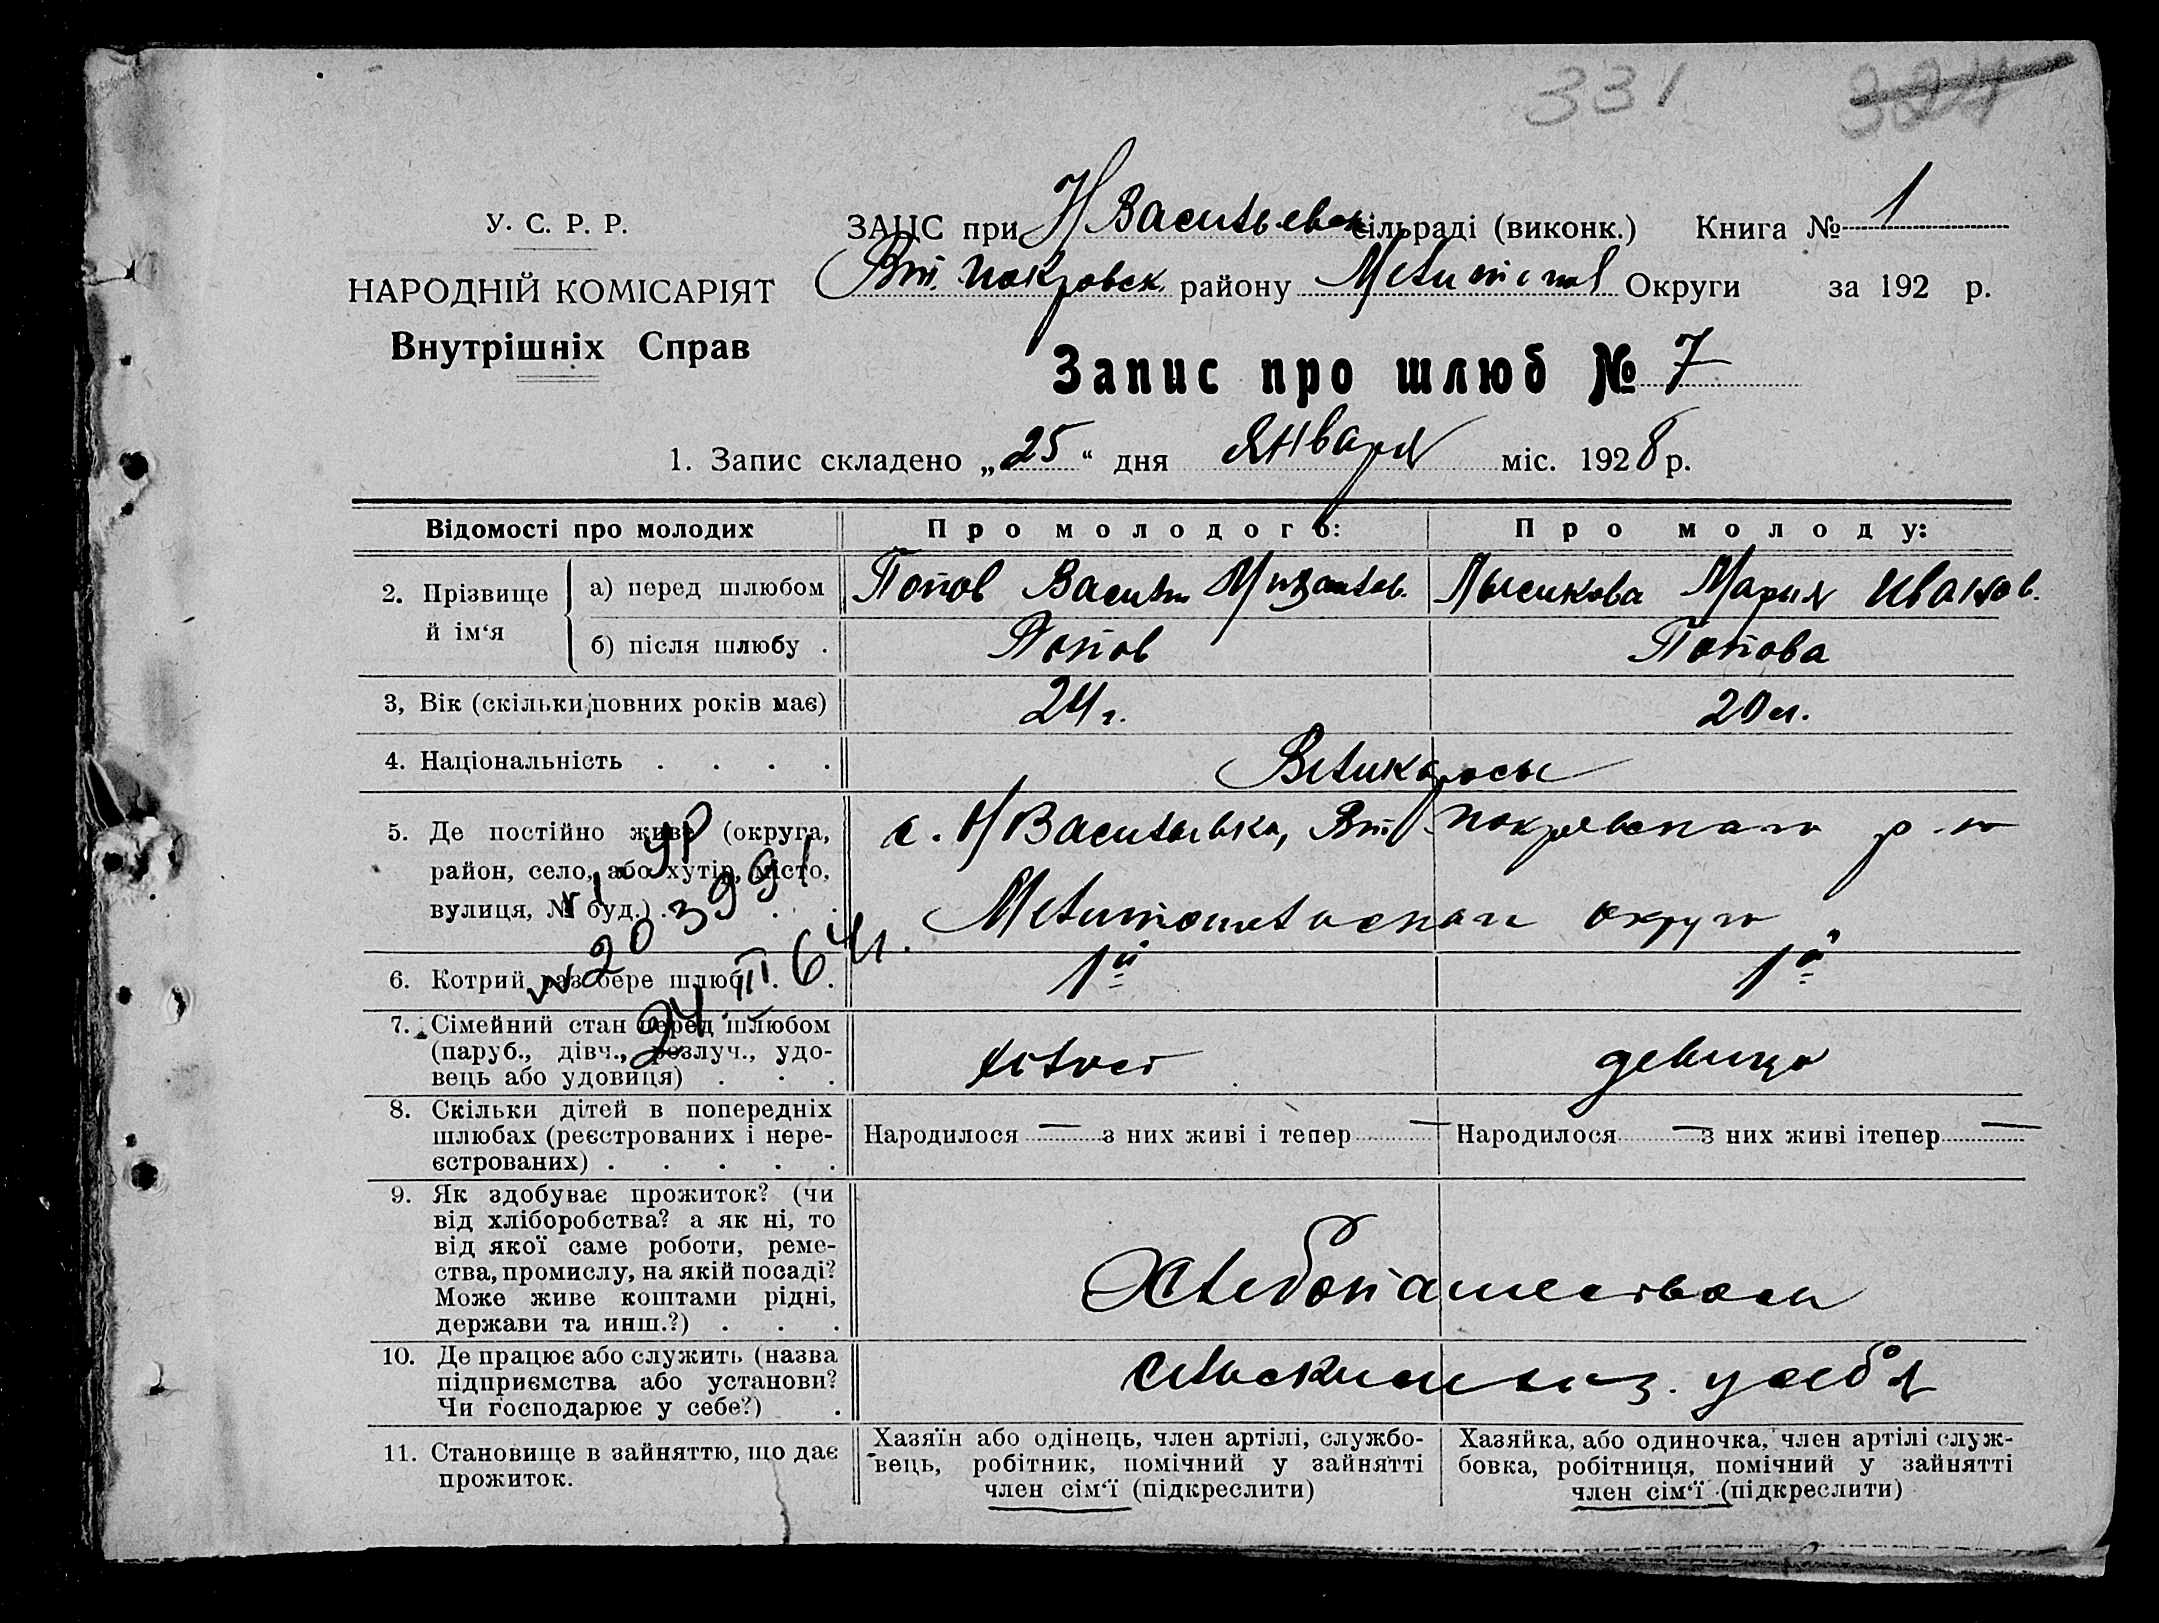 331 324
У. С. Р. Р.
НАРОДНІЙ КОМІСАРІЯТ
Внутрішніх Справ
ЗАЦС при Н Васильевск сільраді (виконк.) Книга № 1
Вт. Покровск. району Мелитопол Округи за 192 р.
Запис про шлюб № 7
1. Запис складено „25“ дня Января міс. 1928 р.
Відомості про молодих Про молодого: Про молоду:
2. Прізвище й ім‘я а) перед шлюбом Попов Василий Лысикова Мария Иванов.
б) після шлюбу . Попов Попова
3, Вік (скільки повних років має) 24 г. 20 л.
4. Національність . . . . Великоросы
5. Де постійно живе (округа, с. Н Васильевка, Вт Покровского р-на
район, село, або хутір, місто, Мелитопольской округи
вулиця, № буд.) . . . .
№ 203991
24 III 64 г.
6. Котрий раз бере шлюб . . 1й 1й
7. Сімейний стан перед шлюбом
(паруб., дівч., розлуч., удо-
вець або удовиця) . . . холост девица
8. Скільки дітей в попередніх
шлюбах (реєстрованих і нере-
єстрованих) . . . . . Народилося — з них живі і тепер — Народилося — з них живі ітепер —
9. Як здобуває прожиток? (чи
від хліборобства? а як ні, то
від якої саме роботи, реме-
ства, промислу, на якій посаді?
Може живе коштами рідні,
держави та инш.?) . . . Хлебопашеством
10. Де працює або служить (назва
підприємства або установи?
Чи господарює у себе?) . сельским хоз. у себя
11. Становище в зайняттю, що дає
прожиток.
Хазяїн або одінець, член артілі, службо-
вець, робітник, помічний у зайнятті
член сім‘ї (підкреслити)
Хазяйка, або одиночка, член артілі служ-
бовка, робітниця, помічний у зайнятті
член сім‘ї (підкреслити)